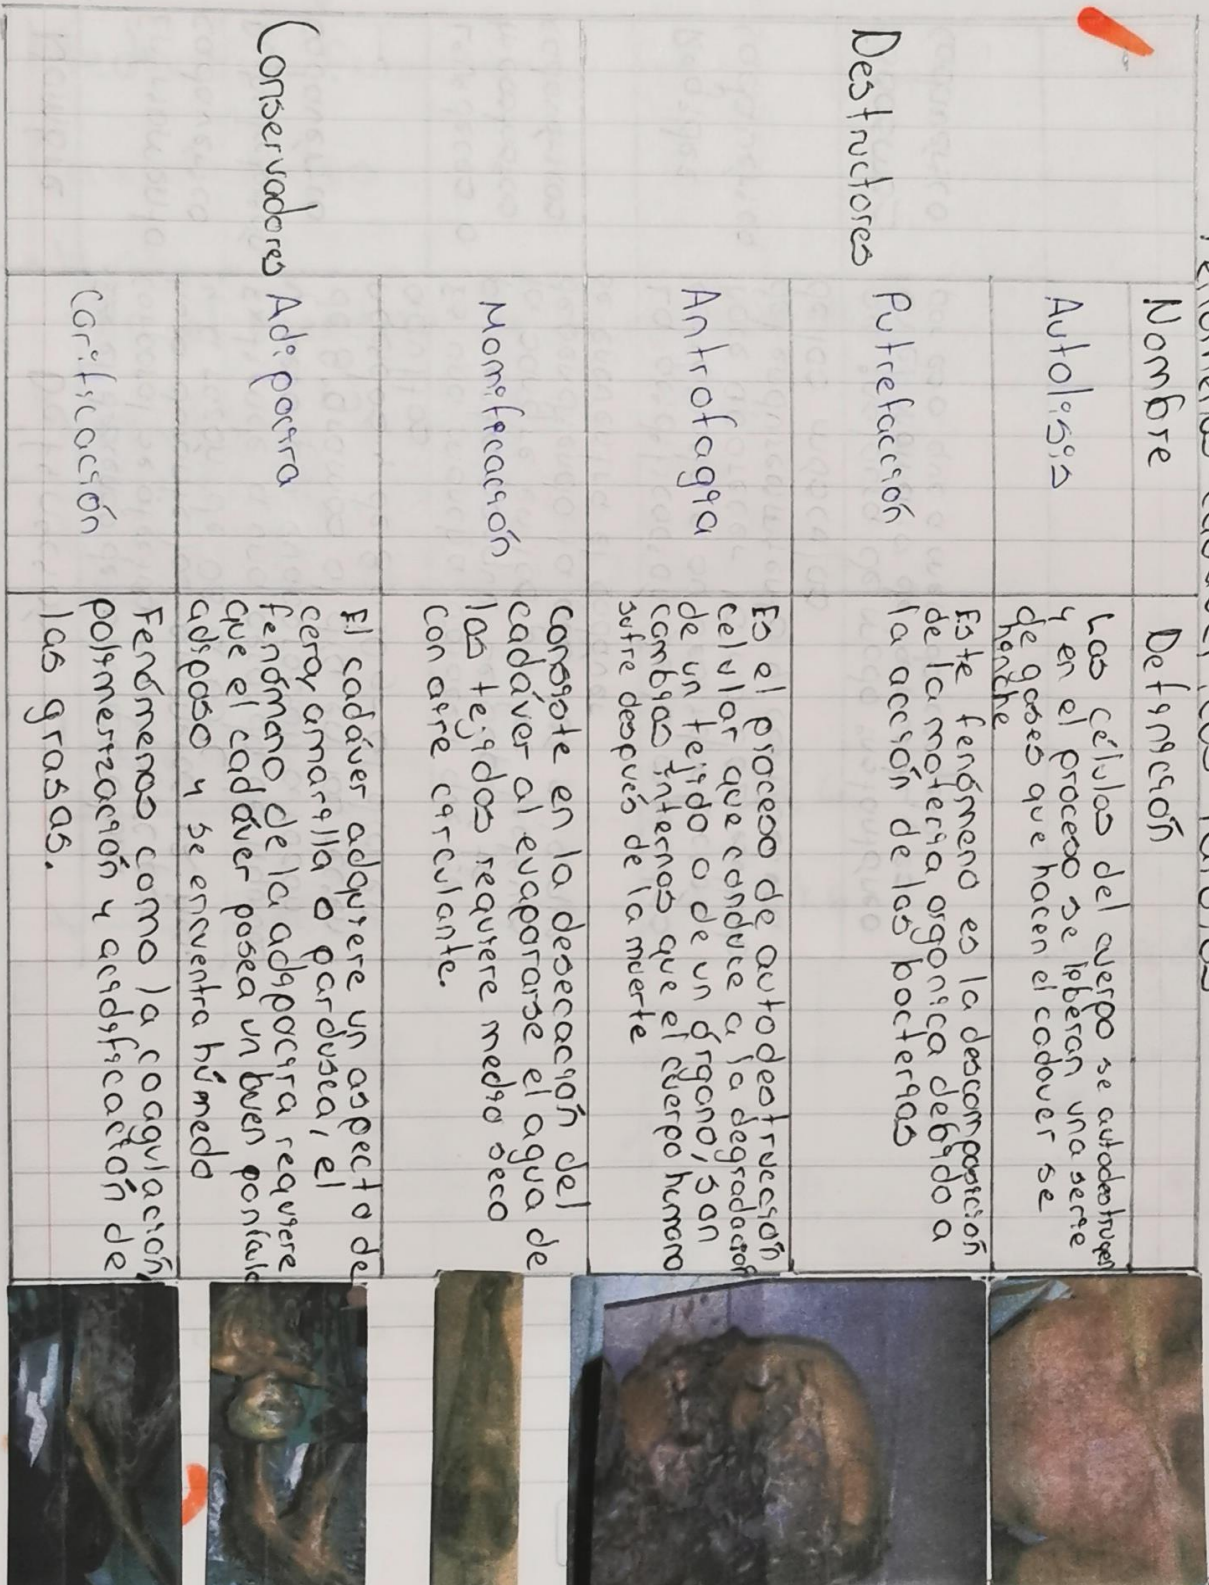 Nombre
Definición
Destructores
Autolisis
Las células del cuerpo se autodestruyen
y en el proceso se liberan una serie
de gases que hacen el cadaver se
hinche
Putrefacción
Este fenómeno es la descomposición
de la materia organica debido a
la acción de las bacterias
Antrofagia
Es el proceso de autodestrucción
celular que conduce a la degradación
de un tejido o de un órgano, son
cambios internos que el cuerpo humano
sufre después de la muerte
Conservadores
Momificación
Consiste en la desecación del
cadáver al evaporarse el agua de
los tejidos requiere medio seco
con aire circulante.
Adipocira
El cadáver adquiere un aspecto de
cera, amarilla o pardusca, el
fenómeno de la adipocira requiere
que el cadáver posea un buen panículo
adiposo y se encuentra húmedo
Corificación
Fenómenos como la coagulación,
polimerización y acidificación de
las grasas.